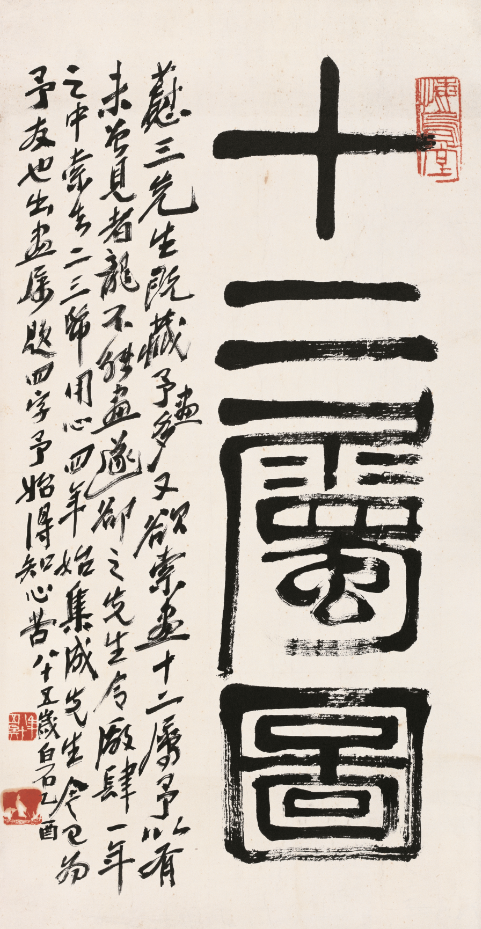 十二屬圖
慰三先生既藏予畫多又欲索畫十二屬予以有
未曾見者龍不能畫遂卻之先生令廠肆一年
之中索去二三幅用心四年始集成先生今已為
予友也出畫屬題四字予始得知心苦八十五歲白石乙酉
悔烏堂